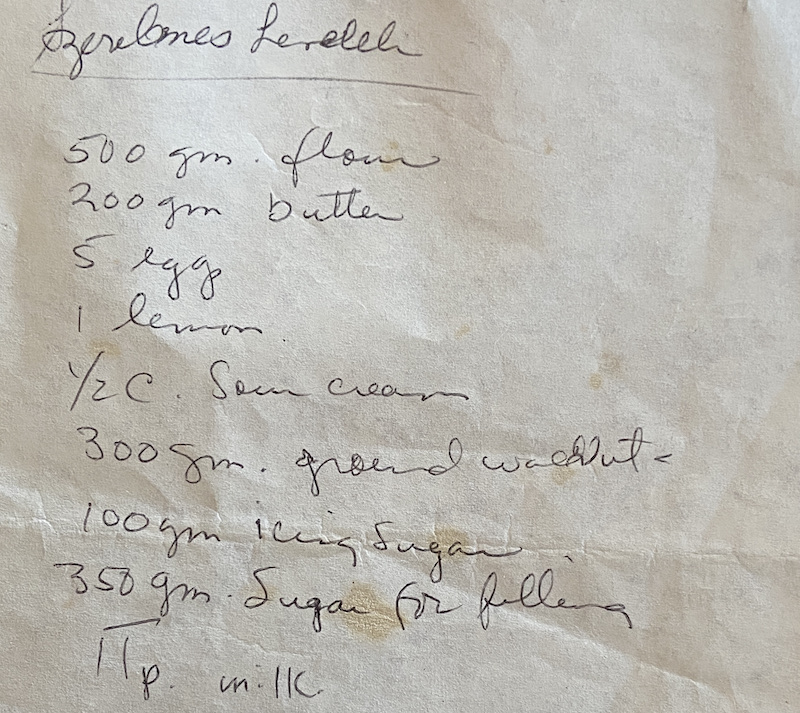 Szerelmes Levelek
500 gm. flour
200 gm butter
5 eggs
1 lemon
1/2 C. Sour cream
300 gm. ground walnuts
100 gm icing sugar
350 gm. Sugar for filling
1 Tp. milk